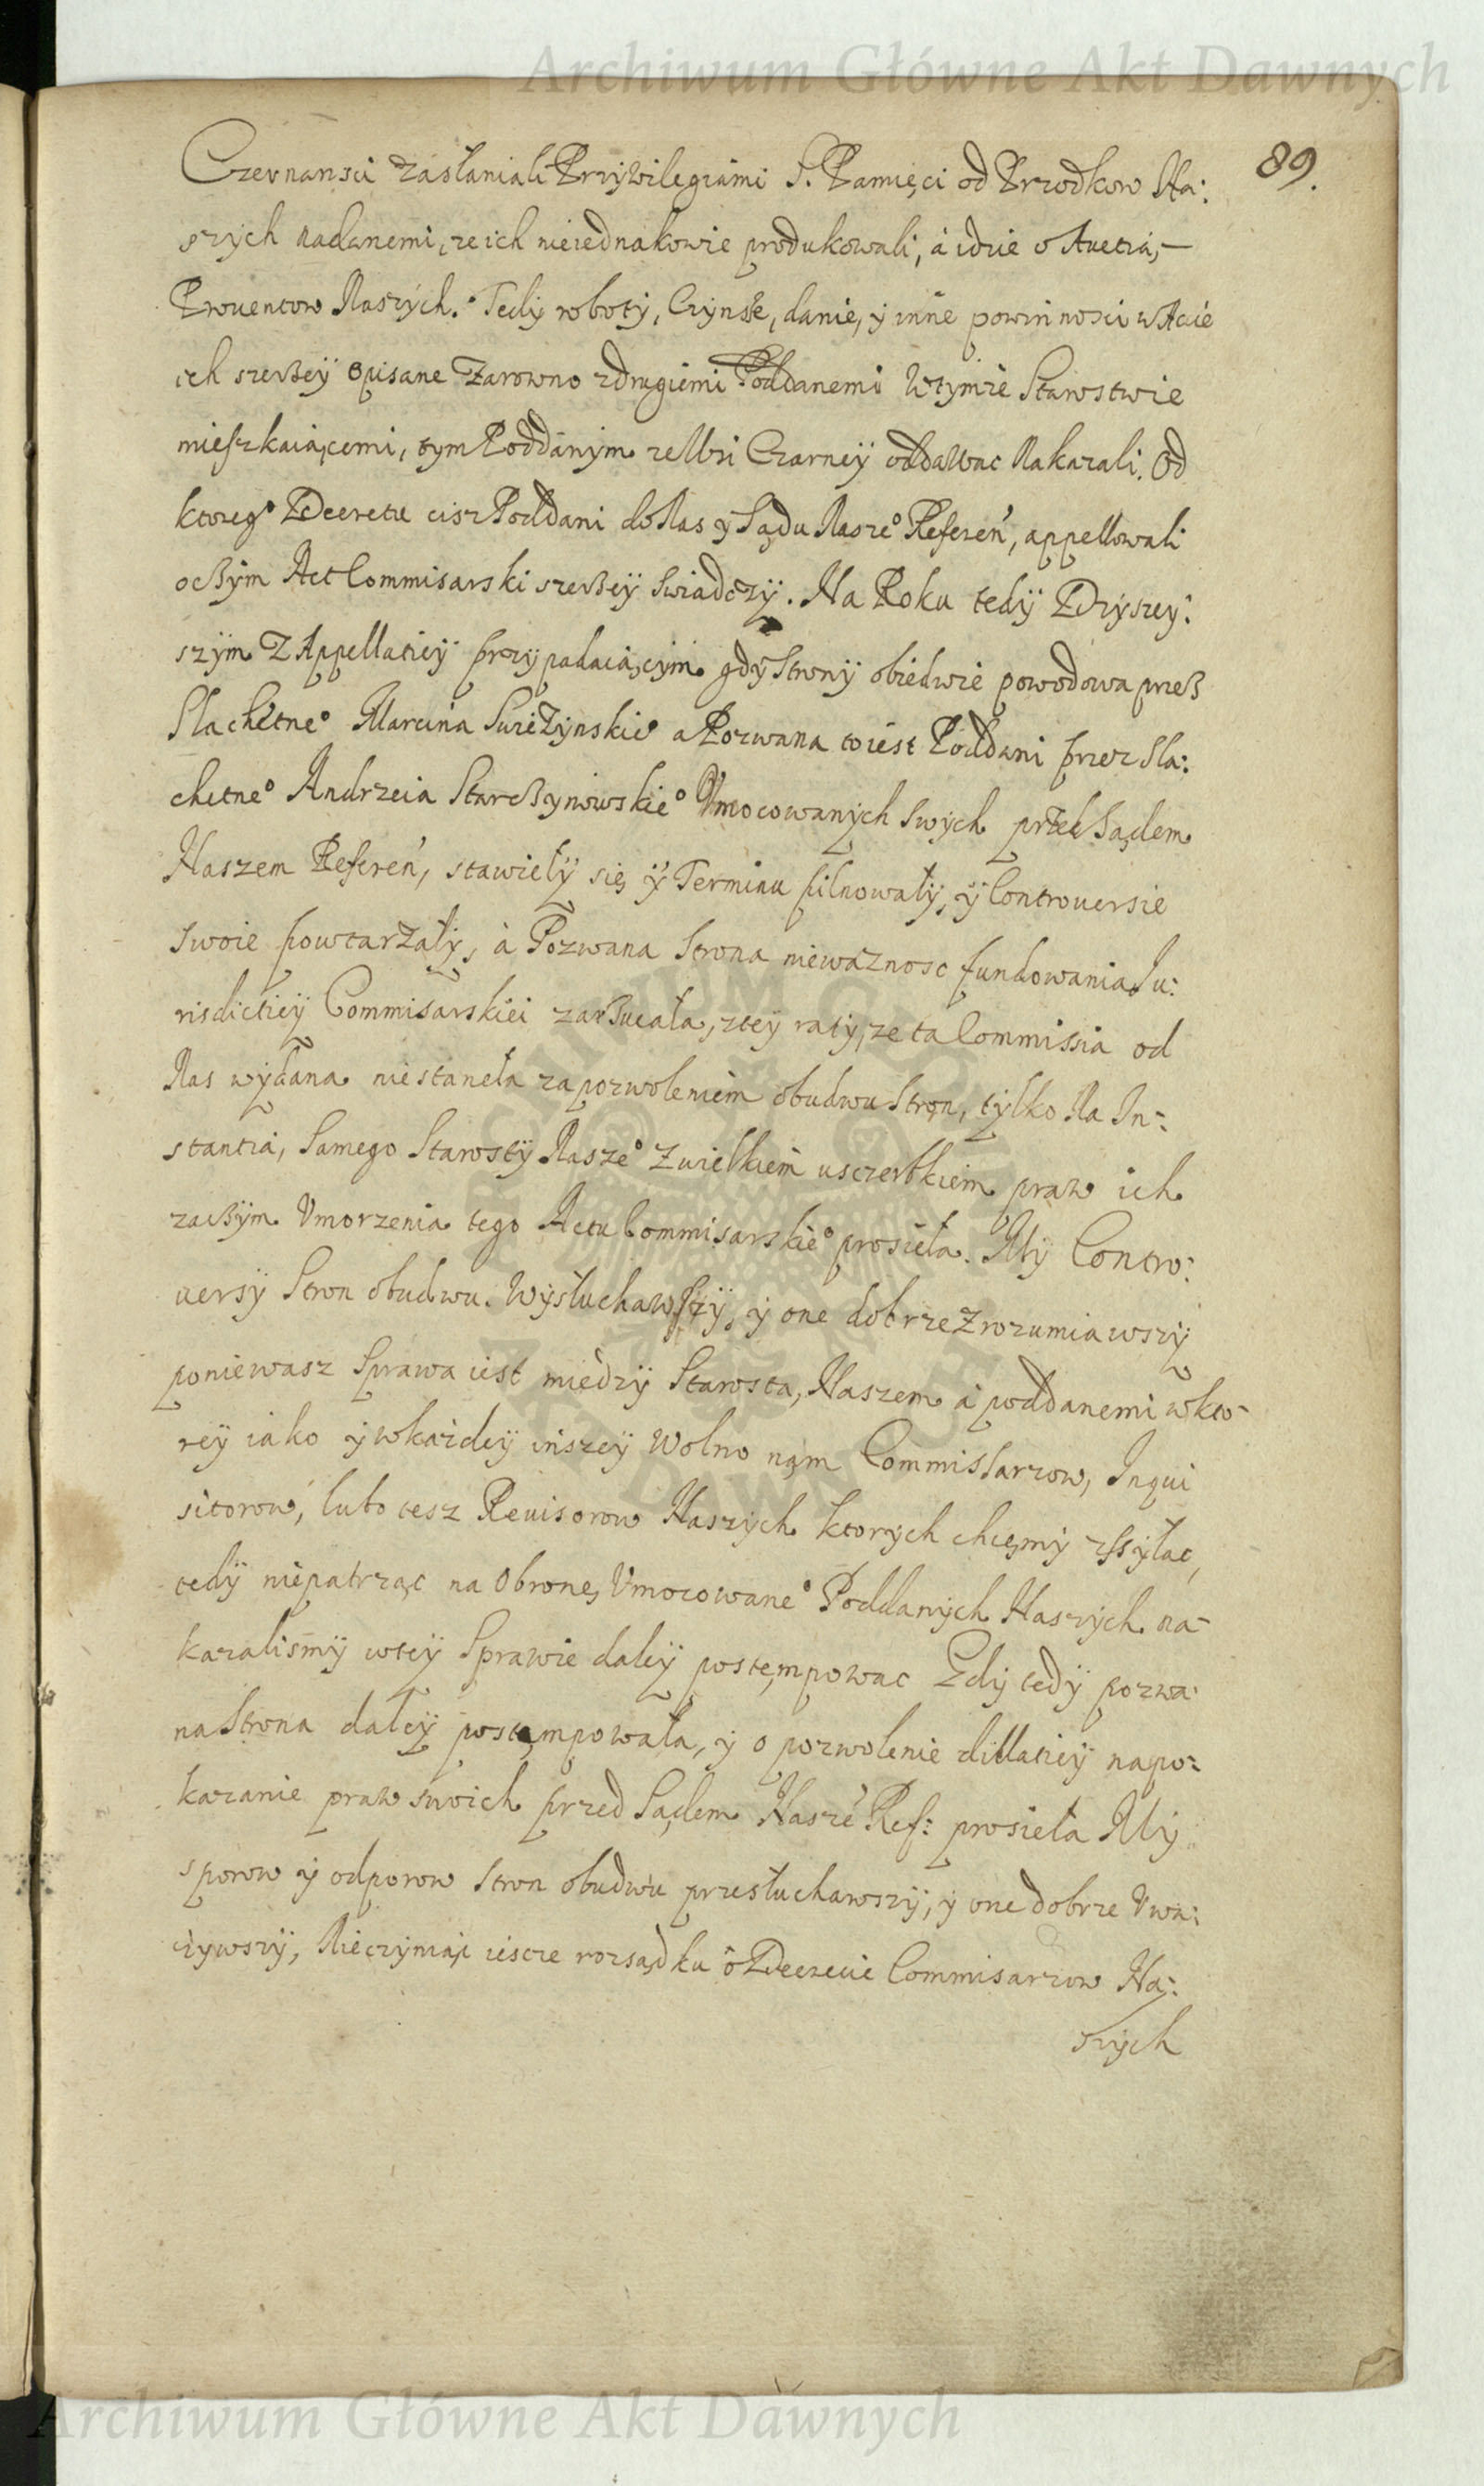 Archiwum Główne Akt Dawnych
89.
Czernansci zasłaniali Przywilegiami S. Pamięci od Przodkow Na:
szych nadanemi, ze ich nieiednakowie produkowali, á idzie o Auctią
Prouentow Naszych. Tedy roboty, Czynsze, danie, y inne powinnosci w Akcie
ich szerßey opisane zarowno z drugiemi Poddanemi w tymze Starostwie
mieszkaiącemi, tym Poddanym ze Wsi Czarney oddawac Nakazali. Od
ktoreg° Decretu cisz Poddani do Nas y Sądu Nasze° Referen, appellowali
oczym Act Commisarski szerßey swiadczy. Na Roku tedy Dzyszey:
szym Z Appellatiey przypadaiącym gdy Strony obiedwie powodowa przeß
Slachetne° Marcina Swiezynskie° a Pozwana to iest Poddani przez Sla:
chetne° Andrzeia Starcßynowskie° Vmocowanych swych przed Sądem
Naszem Referen, stawieły się y Terminu pilnowały, y Controuersie
swoie powtarzały, á Pozwana Strona niewaznosc fundowania Iu:
risdictiey Commisarskiei zarßucała, z tey raty, ze ta Commissia od
Nas wydana nie staneła za pozwoleniem obudwu Stron, tylko Na In:
stantią Samego Starosty Nasze° z wielkiem usczerbkiem praw ich
zacßym Vmorzenia tego Actu Commisarskie° prosieła. My Contro:
uersy Stron obudwu. Wysłuchawszy, y one dobrze zrozumiawszy
poniewasz Sprawa iest miedzy Starostą Naszem á poddanemi w kto-
rey iako y w kazdey inszey wolno nąm Commissarzow, Inqui
sitorow, lubo tesz Reuisorow Naszych ktorych chcemy zssyłac,
tedy niepatrząc na Obronę Vmocowane° Poddanych Naszych na-
kazalismy wtey Sprawie daley postempowac Gdy tedy pozwa:
na Strona daley postempowała, y o pozwolenie dillatiey na po:
kazanie praw swoich przed Sądem Nasze° Ref: prosieła My
sporow y odporow Stron obudwu przesłuchawszy, y one dobrze Vwa:
zywszy, Nieczyniąc iescze rozsądku o Decrecie Commisarzow Na:
szych
Archiwum Główne Akt Dawnych